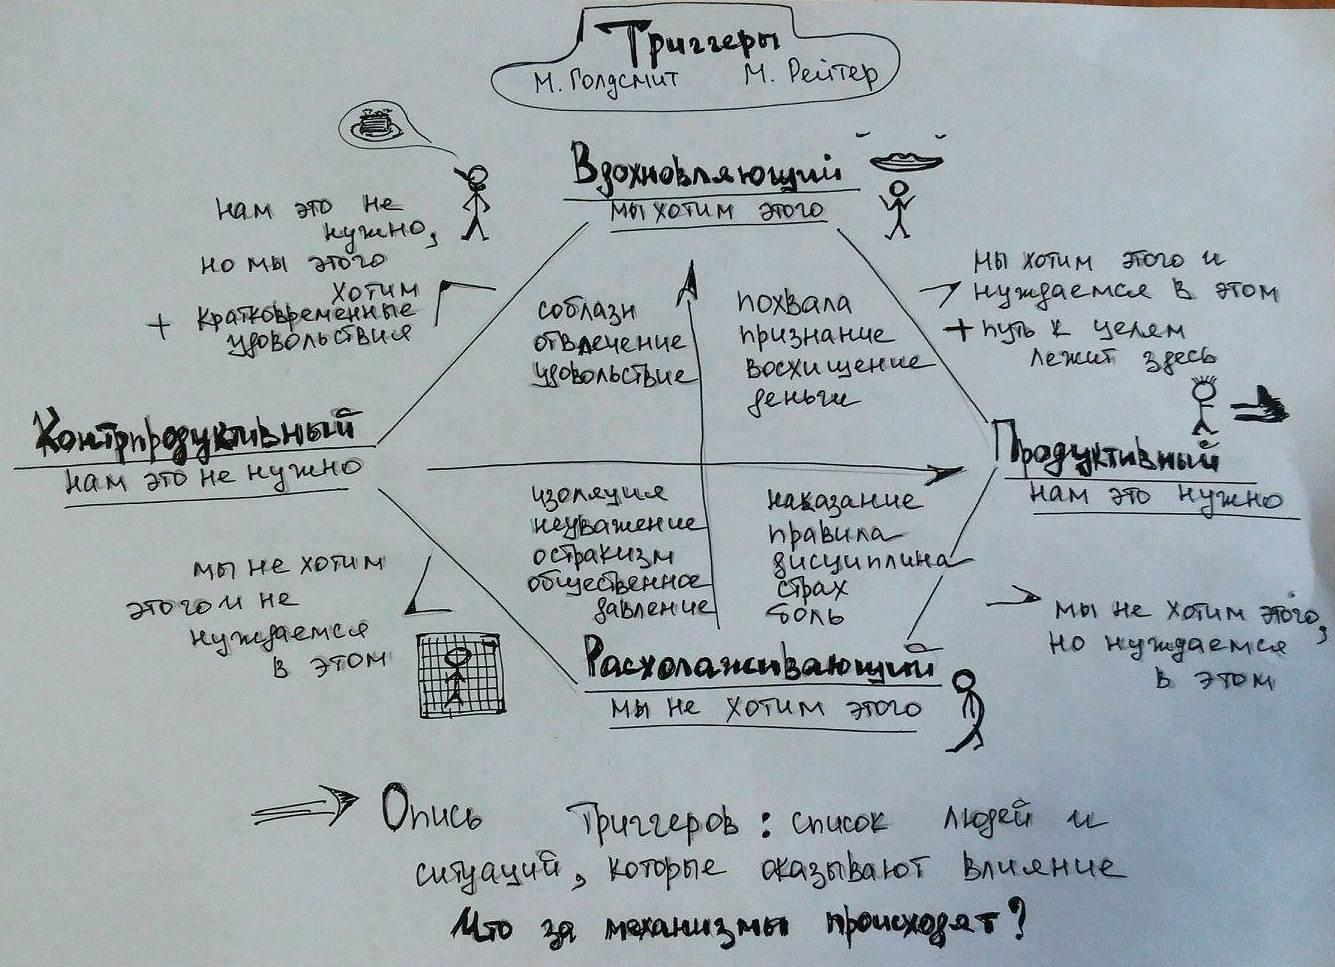 Триггеры
М. Голдсмит М. Рейтер
Вдохновляющий
мы хотим этого
нам это не
нужно,
но мы этого
хотим
+ кратковременные
удовольствия
соблазн
отвлечение
удовольствие
похвала
признание
восхищение
деньги
мы хотим этого и
нуждаемся в этом
+ путь к целям
лежит здесь
Контрпродуктивный
нам это не нужно
Продуктивный
нам это нужно
изоляция
неуважение
остракизм
общественное
давление
наказание
правила
дисциплина
страх
боль
мы не хотим
этого и не
нуждаемся
в этом
мы не хотим этого,
но нуждаемся
в этом
Расхолаживающий
мы не хотим этого
Опись триггеров: список людей и
ситуаций, которые оказывают влияние
Что за механизмы происходят?